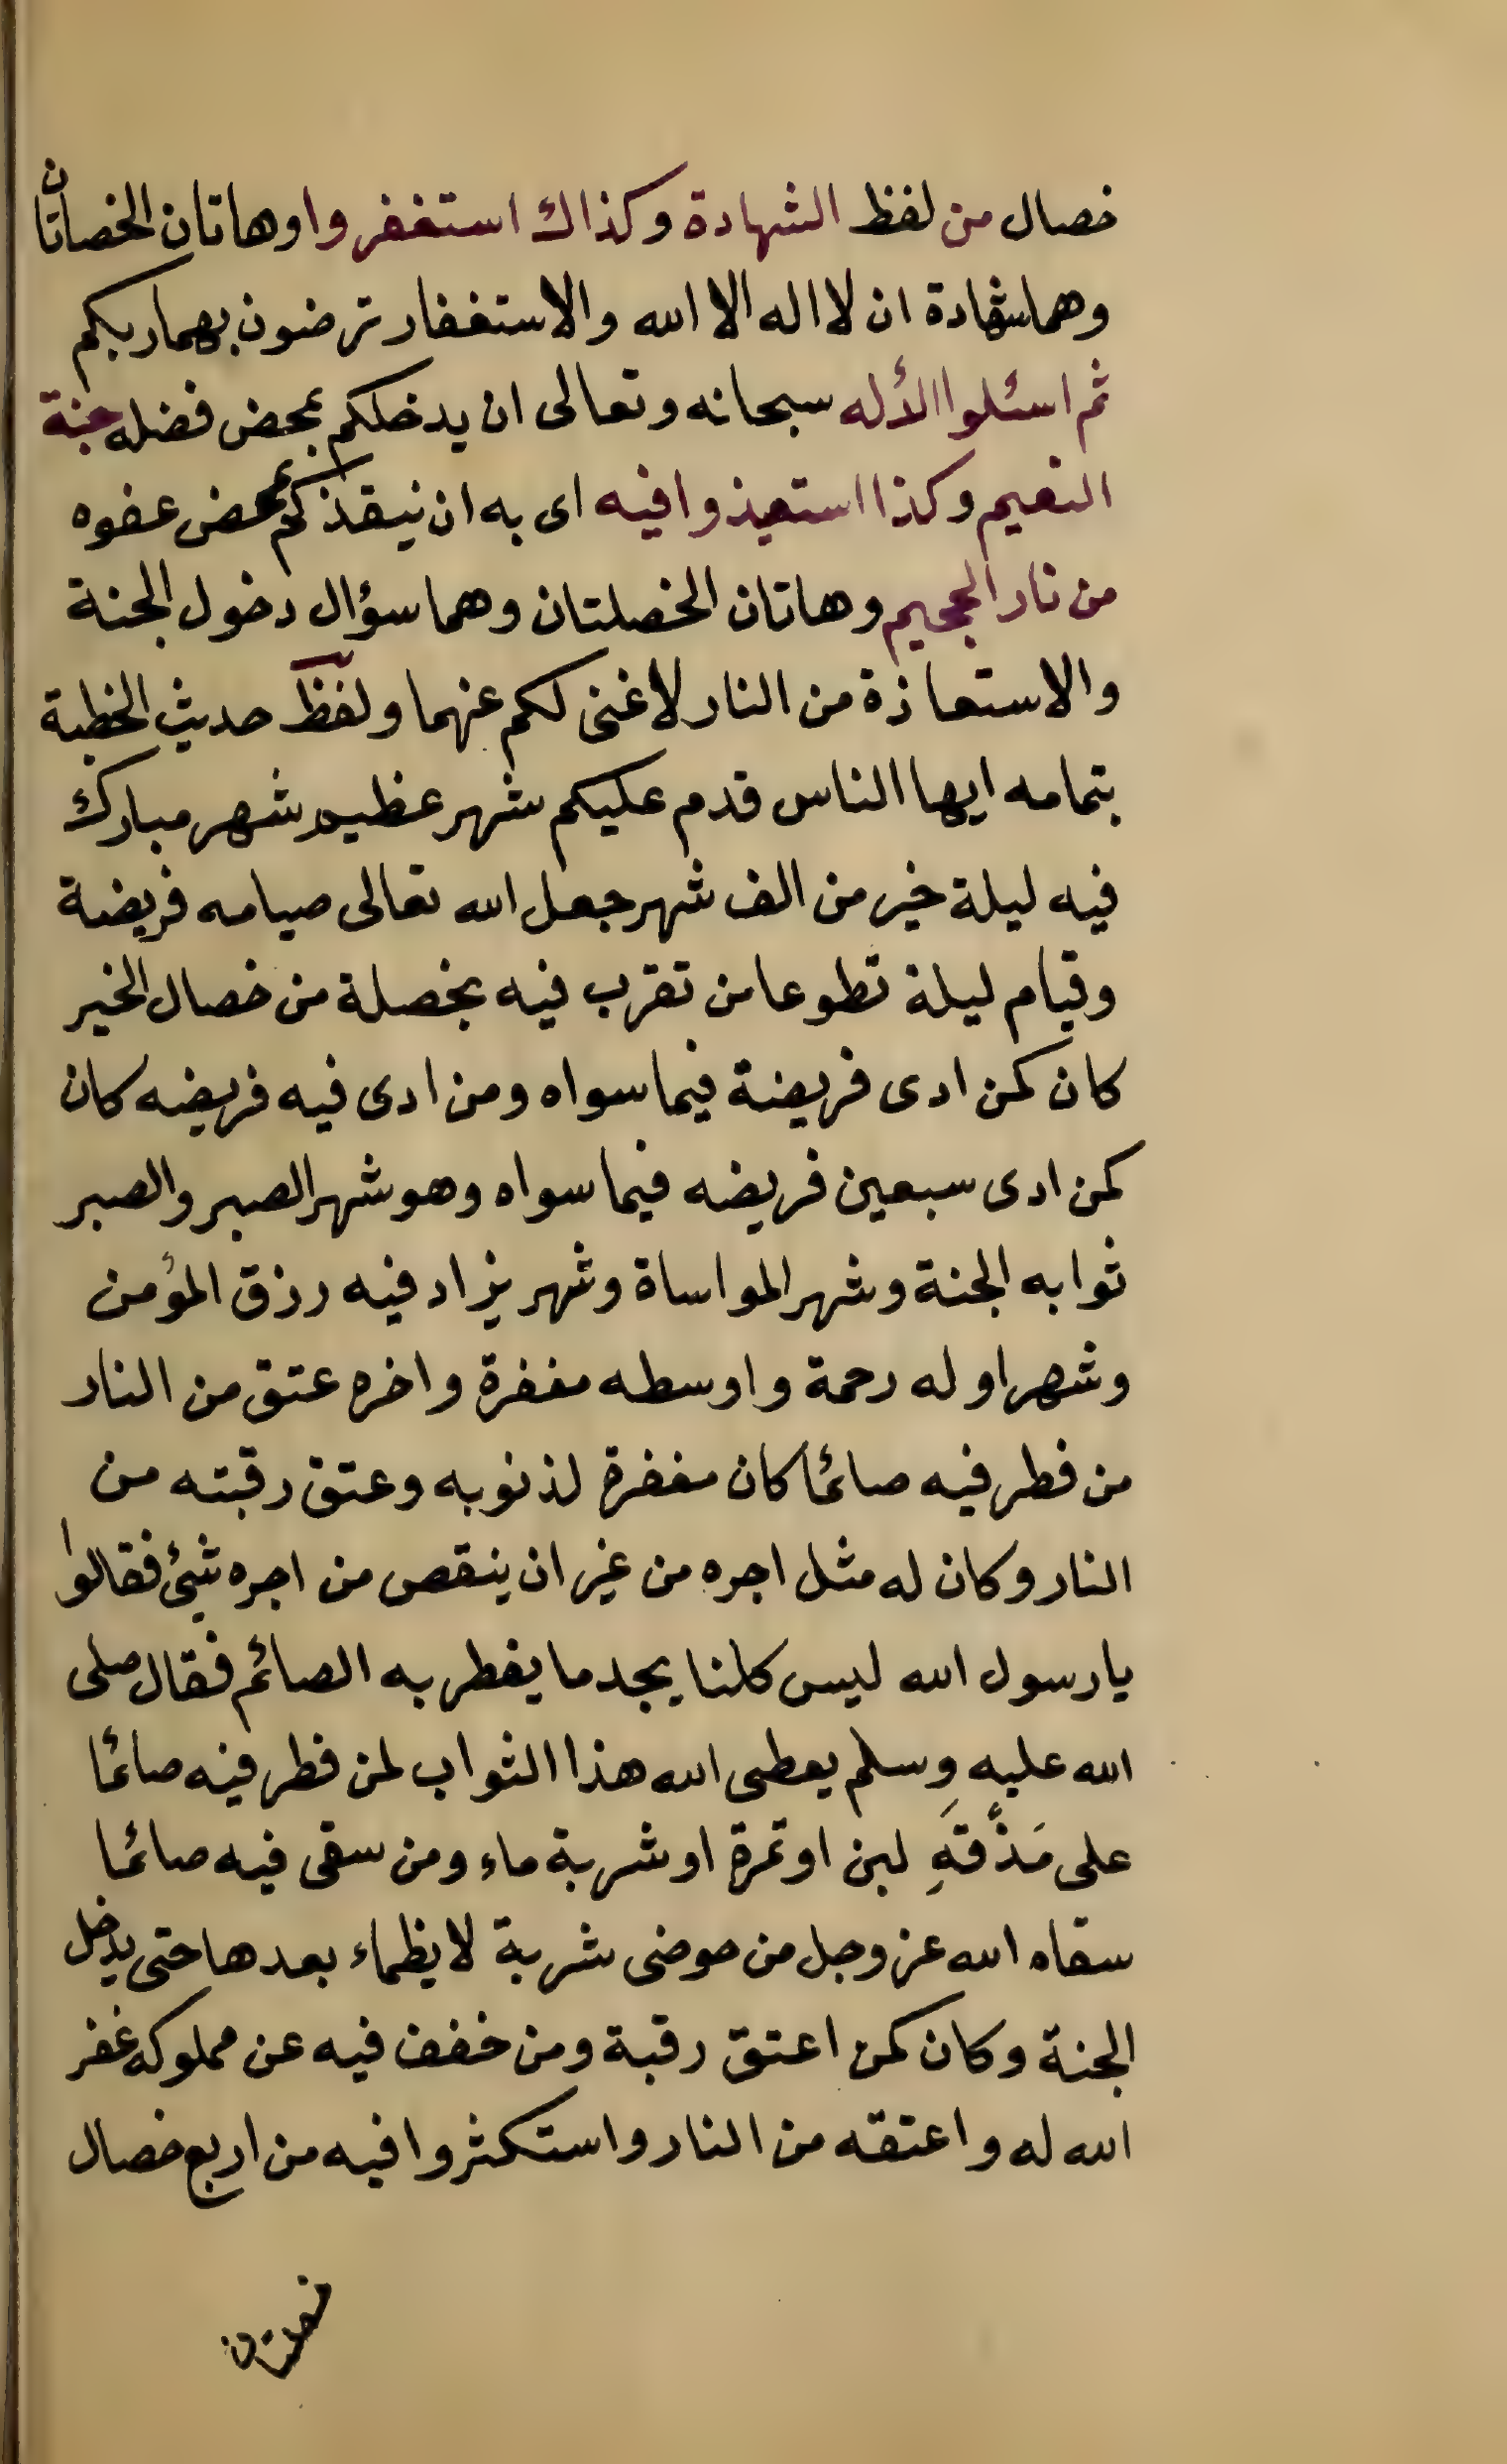 خصال من لفظ الشهادة وكذاك استغفروا وهاتان الخصلتان
وهما شهادة ان لا اله الا الله والاستغفار ترضون بهما ربكم
ثم اسئلوا الأله سبحانه وتعالى ان يدخلكم بمحض فضله جنة
النعيم وكذا استعيذوا فيه اى به ان ينقذكم بمحض عفوه
من نار الجحيم وهاتان الخصلتان وهما سؤال دخول الجنة
والاستعاذة من النار لا غنى لكم عنهما ولفظ حديث الخطبة
بتمامه ايها الناس قدم عليكم شهر عظيم شهر مبارك
فيه ليلة خير من الف شهر جعل الله تعالى صيامه فريضة
وقيام ليلة تطوعا من تقرب فيه بخصلة من خصال الخير
كان كمن ادى فريضة فيما سواه ومن ادى فيه فريضه كان
كمن ادى سبعين فريضه فيما سواه وهو شهر الصبر والصبر
ثوابه الجنة وشهر المواساة وشهر يزاد فيه رزق المؤمن
وشهر اوله رحمة واوسطه مغفرة واخره عتق من النار
من فطر فيه صائما كان مغفرة لذنوبه وعتق رقبته من
النار وكان له مثل اجره من غير ان ينقص من اجره شئ فقالوا
يا رسول الله ليس كلنا يجد ما يفطر به الصائم فقال صلى
الله عليه وسلم يعطى الله هذا الثواب لمن فطر فيه صائما
على مَذْقَةِ لبن او تمرة او شربة ماء ومن سقى فيه صائما
سقاه الله عز وجل من حوضى شربة لا يظماء بعدها حتى يدخل
الجنة وكان كمن اعتق رقبة ومن خفف فيه عن مملوكه غفر
الله له واعتقه من النار واستكثروا فيه من اربع خصال
خصلتين